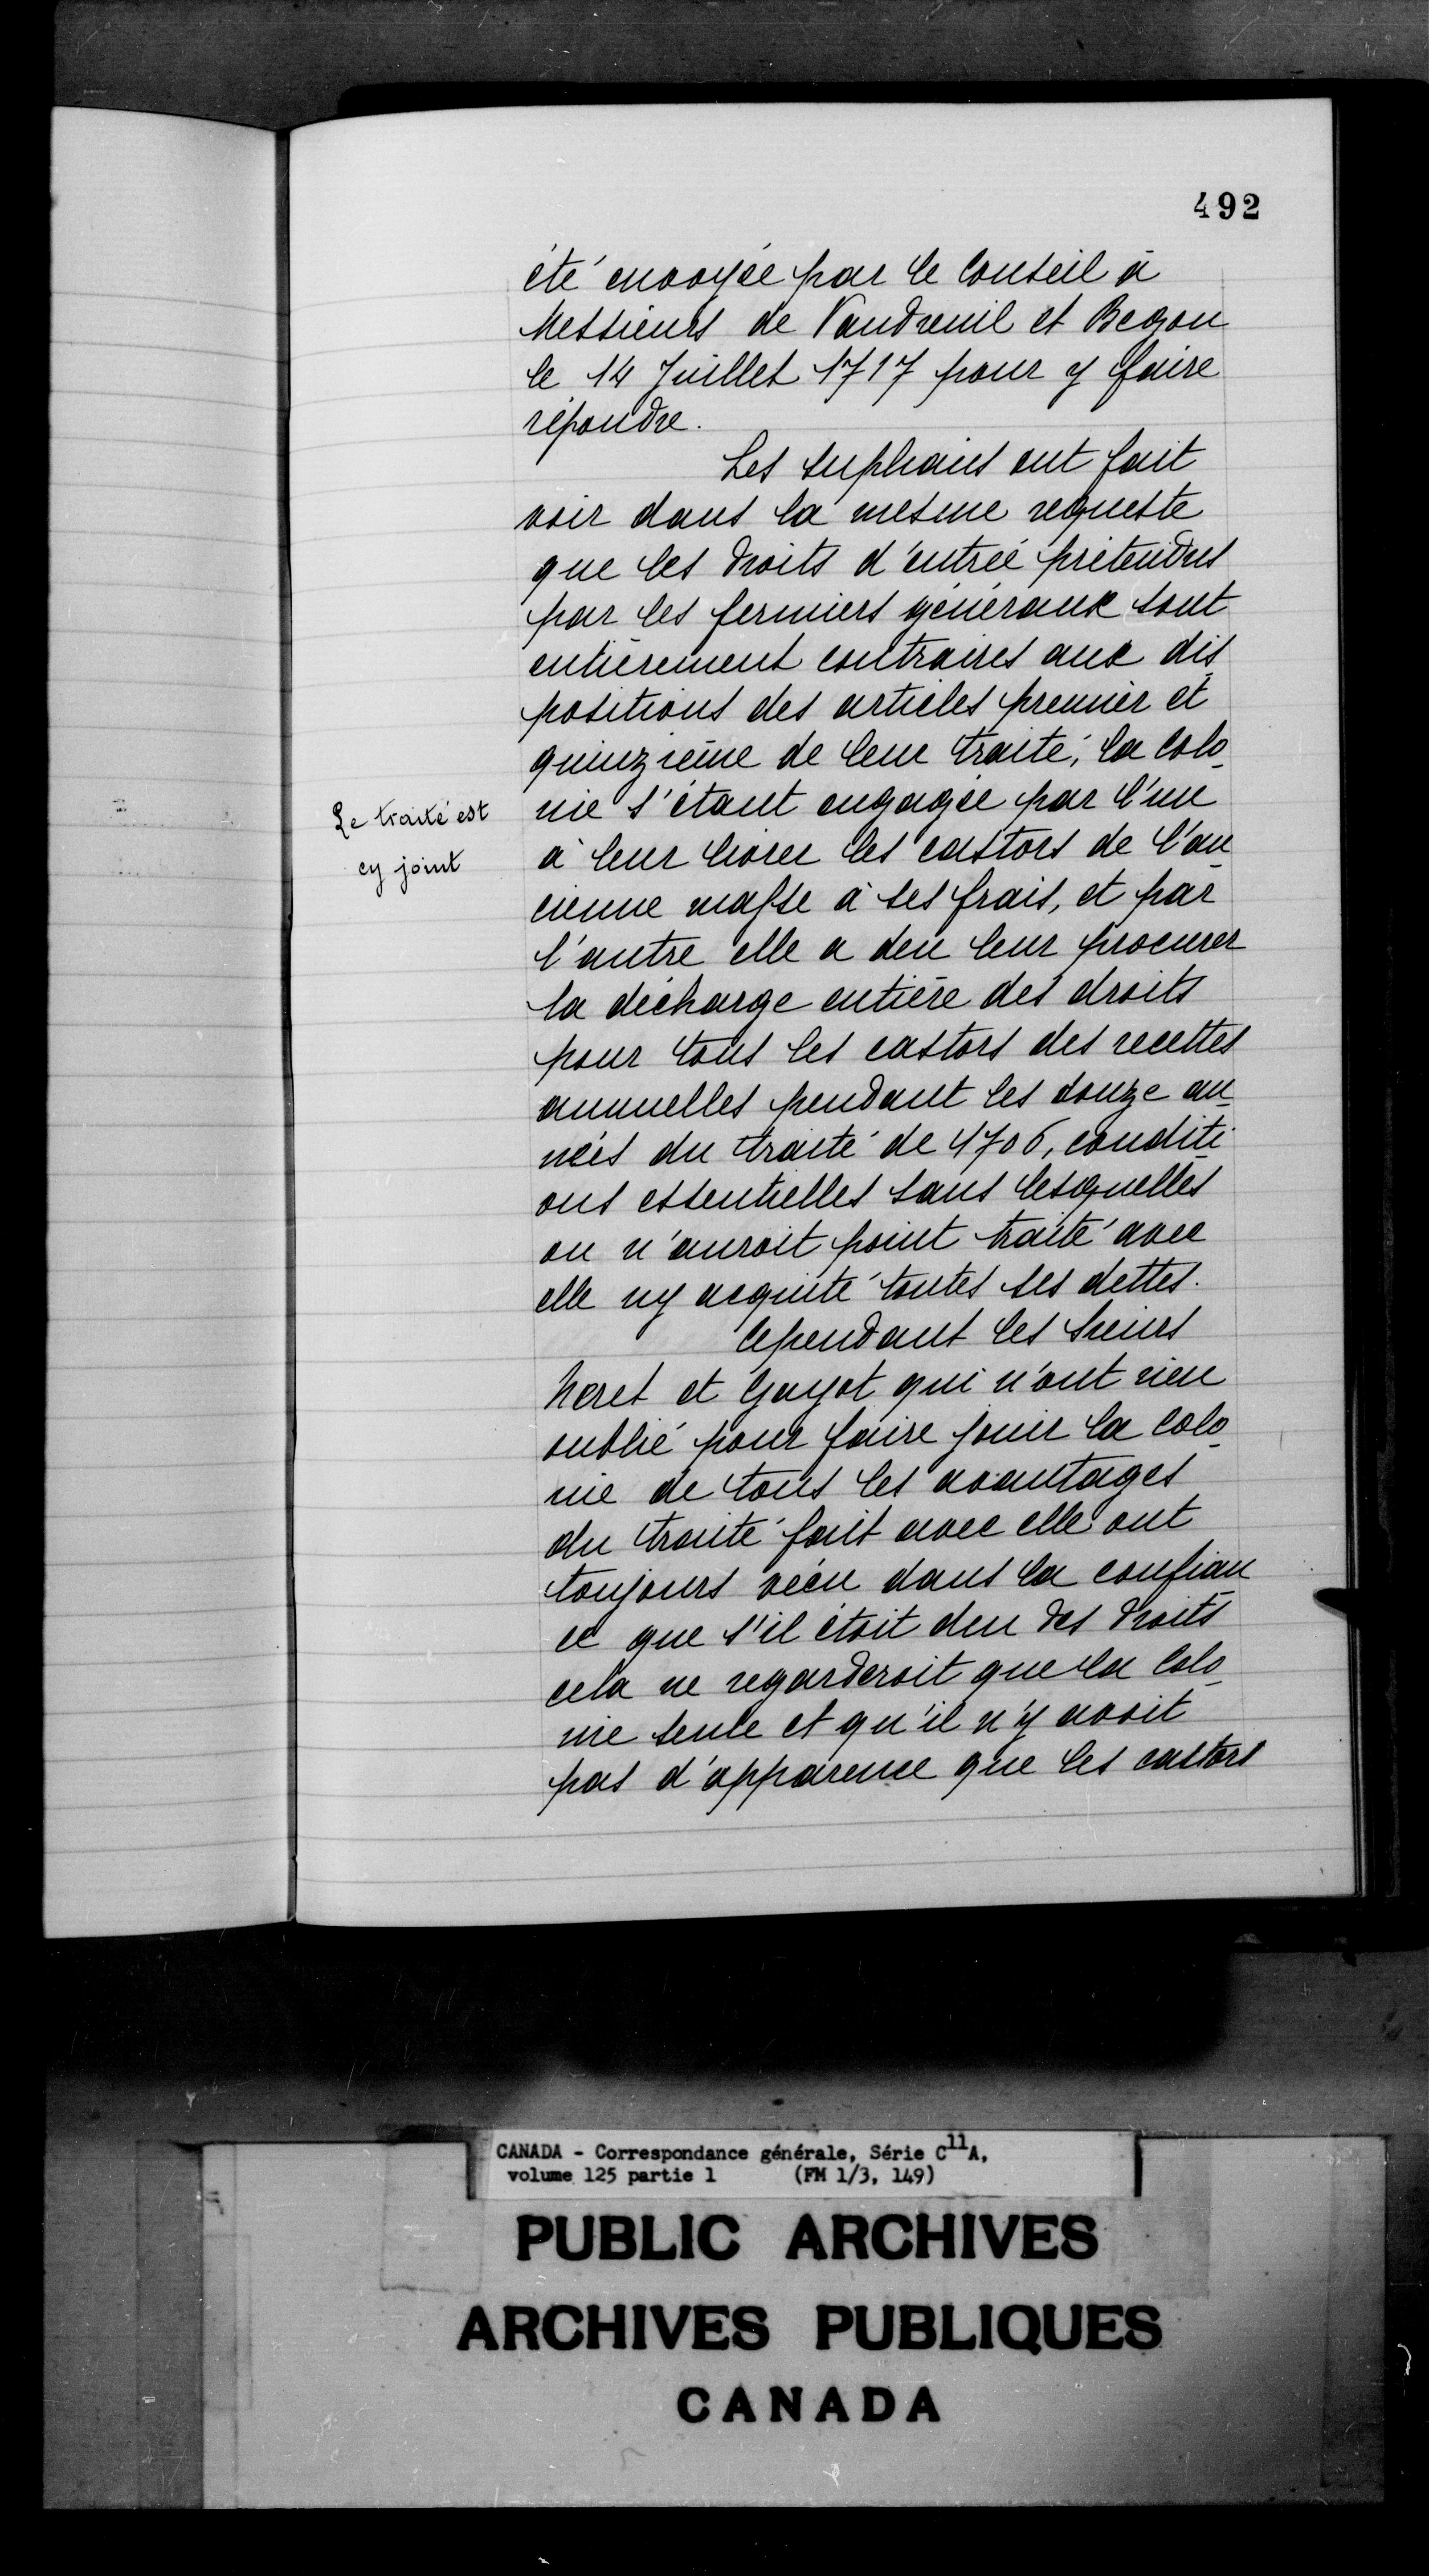 492
été envoyée par le Conseil à
Messieurs de Vaudreuil et Begon
le 14 Juillet 1717 pour y faire
répondre.
Les supliants ont fait
voir dans la mesme requeste
que les droits d'entrée prétendus
par les fermiers généraux sont
entièrement contraires aux dis
positions des articles premier et
quinzième de leur traité, la Colo
nie s'étant engagée par l'un
Le traité est
cy joint
à leur livrer les castors de l'an
cienne masse à ses frais, et par
l'autre elle a deu leur procurer
la décharge entière des droits
pour tous les castors des recettes
annuelles pendant les douze an
nées du traité de 1706, conditi
ons essentielles sans lesquelles
on n'auroit point traité avec
elle ny acquité toutes ses dettes.
Cependant les Sieurs
Neret et Gayot qui n'ont rien
oublié pour faire jouir la colo
nie de tous les avantages
du traité fait avec elle ont
toujours vécu dans la confian
ce que s'il étoit deu des droits
cela ne regarderoit que la Colo
nie seule et qu'il n'y avoit
pas d'apparence que les castors
CANADA - Correspondance générale, Série C11A,
volume 125 partie 1 (FM 1/3, 149)
PUBLIC ARCHIVES
ARCHIVES PUBLIQUES
CANADA